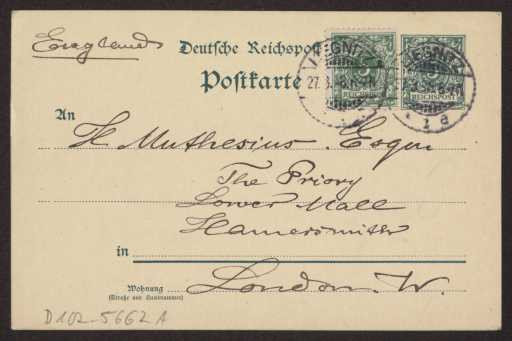 England
Deutsche Reichspost
Postkarte
LIEGNITZ
REICHSPOST
LIEGNITZ
REICHSPOST
1 a
An
H. Muthesius. Esqu
The Priory
Lower Mall
Hamersmith
in
London. W.
Wohnung
(Straße und Hausnummer)
D102-5662 A